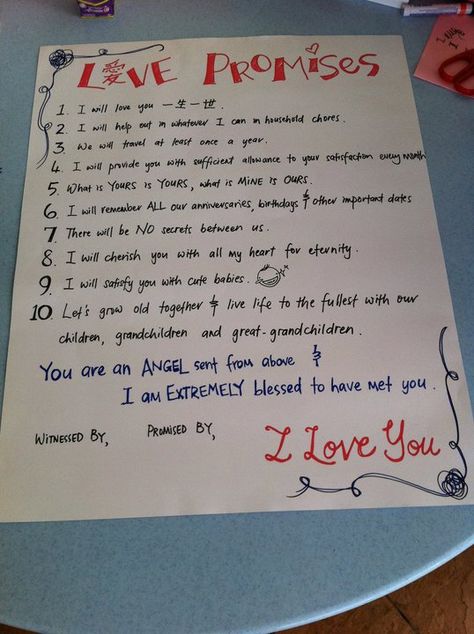 L愛VE PROMISES
1. I will love you 一生一世.
2. I will help out in whatever I can in household chores.
3. We will travel at least once a year.
4. I will provide you with sufficient allowance to your satisfaction every month
5. What is YOURS is YOURS, what is MINE is OURS.
6. I will remember ALL our anniversaries, birthdays & other important dates
7. There will be NO secrets between us.
8. I will cherish you with all my heart for eternity.
9. I will satisfy you with cute babies.
10. Let's grow old together & live life to the fullest with our
children, grandchildren and great-grandchildren.
You are an ANGEL sent from above &
I am EXTREMELY blessed to have met you.
WITNESSED BY, PROMISED BY,
I Love You